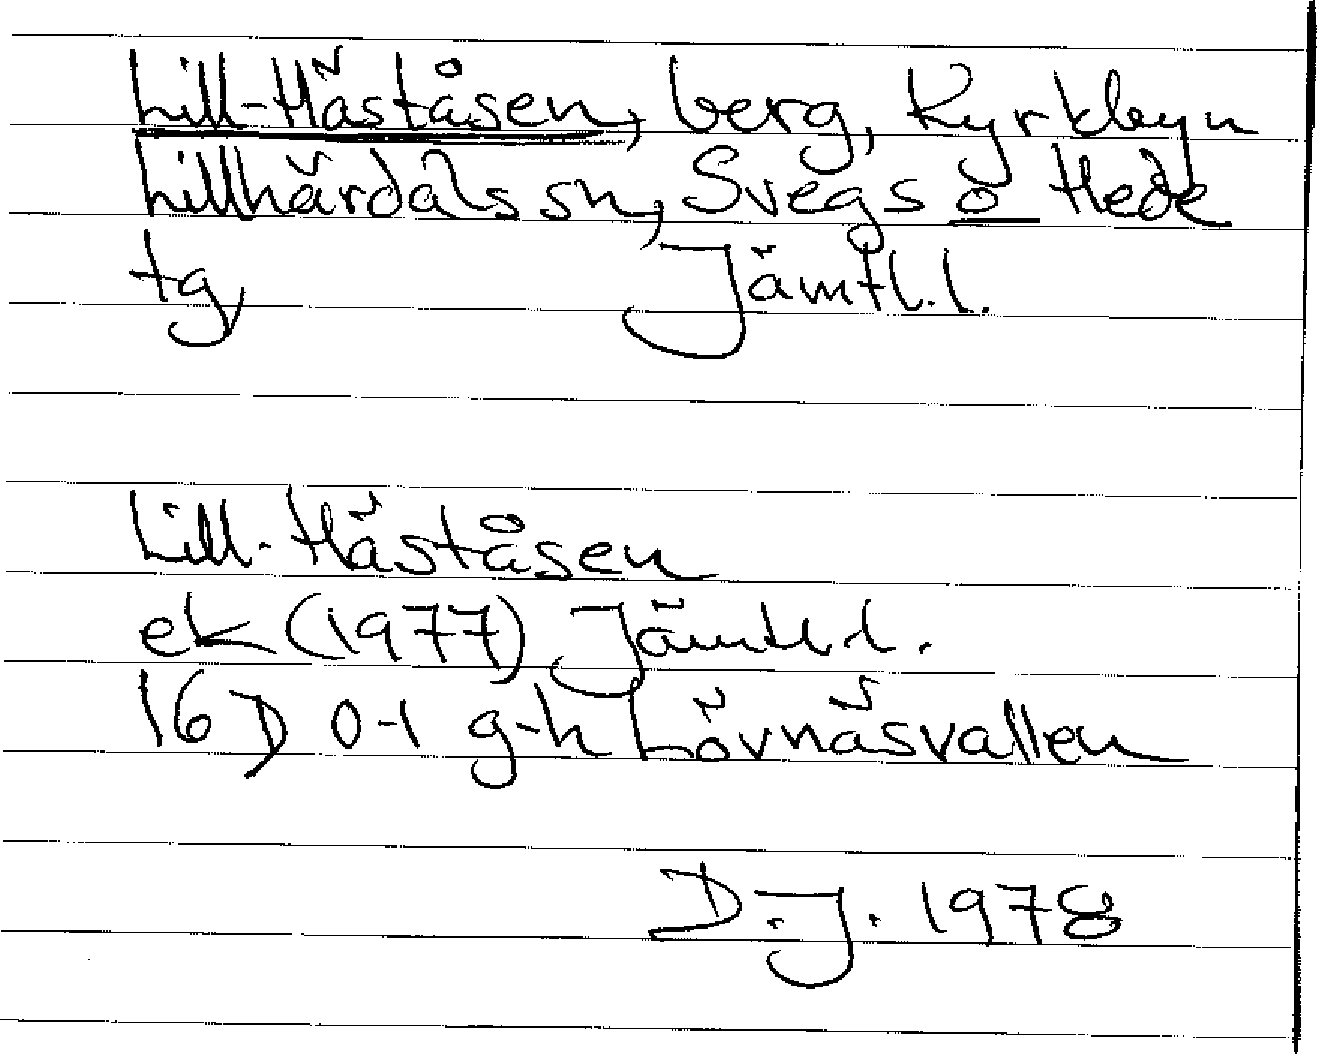 Lill-Häståsen, berg, Kyrkbyn
Lillhärdals sn, Svegs o Hede
tg, Jämtl.l.
Lill-Häståsen
ek (1977) Jämtl.l.
16 D 0-1 g-h Lövnäsvallen
D.J. 1978